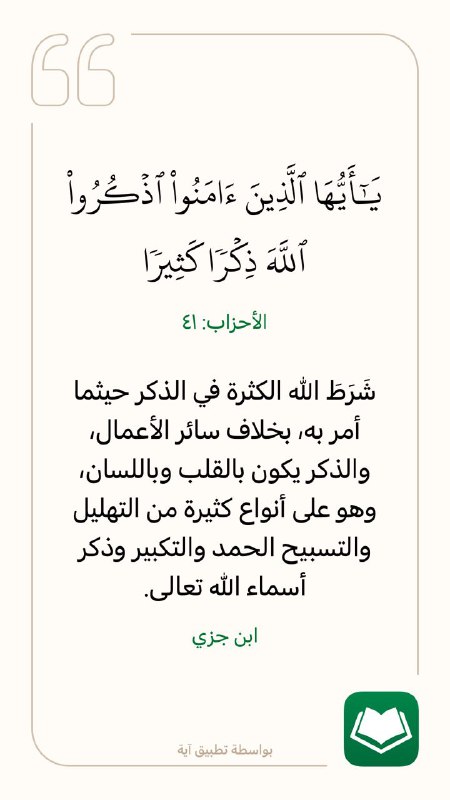 يَـٰٓأَيُّهَا ٱلَّذِينَ ءَامَنُوا۟ ٱذْكُرُوا۟
ٱللَّهَ ذِكْرًا كَثِيرًا
الأحزاب: ٤١
شَرَطَ الله الكثرة في الذكر حيثما
أمر به، بخلاف سائر الأعمال،
والذكر يكون بالقلب وباللسان،
وهو على أنواع كثيرة من التهليل
والتسبيح الحمد والتكبير وذكر
أسماء الله تعالى.
ابن جزي
بواسطة تطبيق آية